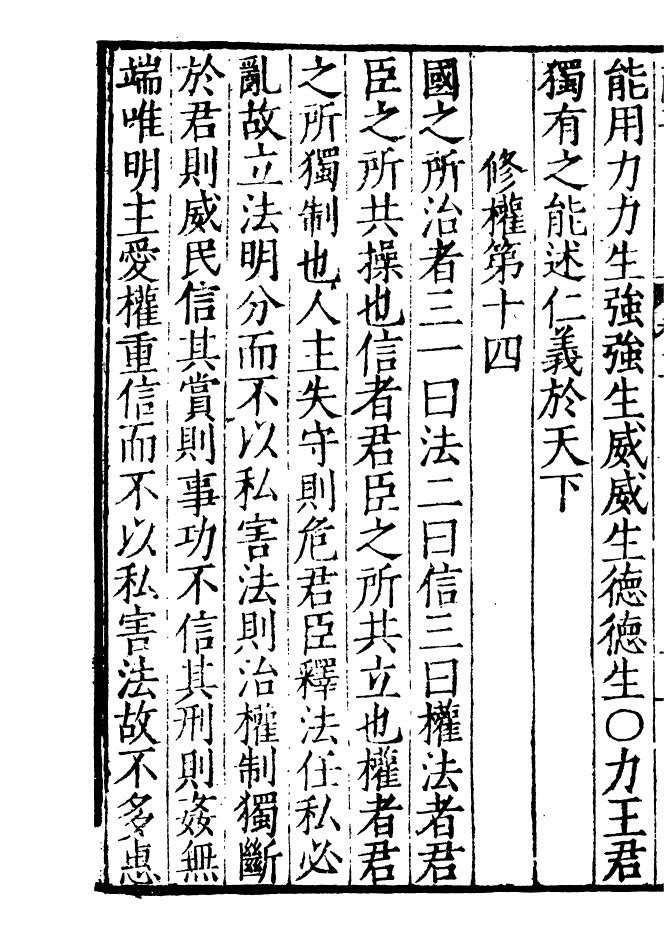 能用力力生強強生威威生德德生〇力王君
獨有之能述仁義於天下
修權第十四
國之所治者三一曰法二曰信三曰權法者君
臣之所共操也信者君臣之所共立也權者君
之所獨制也人主失守則危君臣釋法任私必
亂故立法明分而不以私害法則治權制獨斷
於君則威民信其賞則事功不信其刑則姦無
端唯明主愛權重信而不以私害法故不多惠